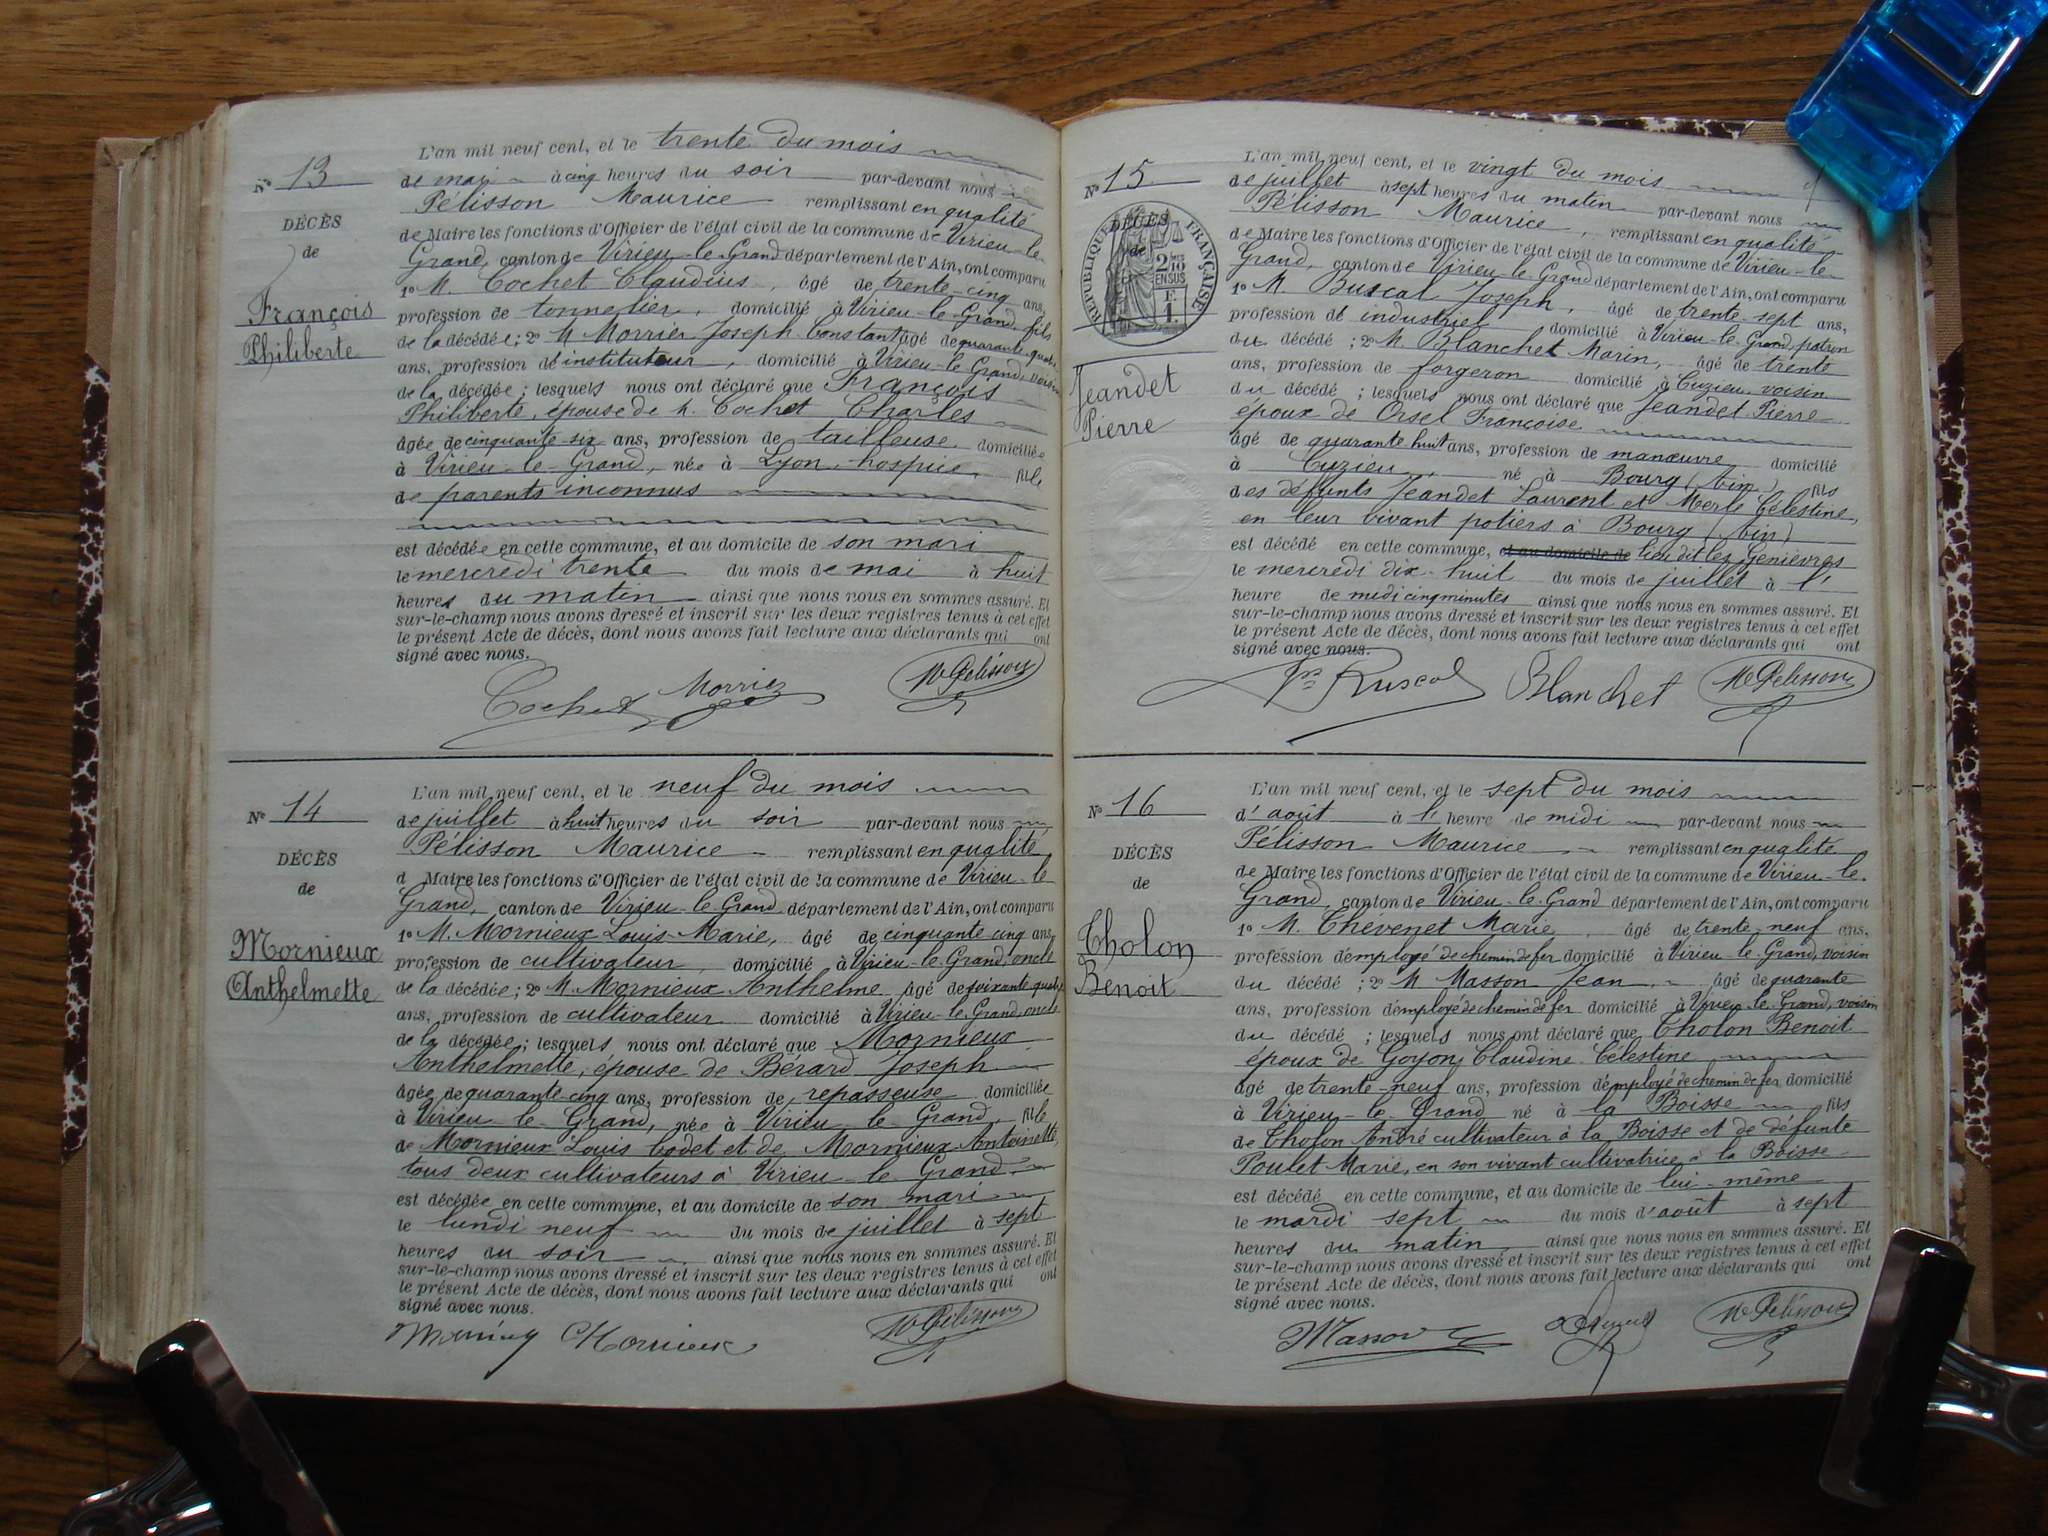 L'an mil neuf cent, et le trente du mois
Nº 13
de mai à cinq heures du soir par-devant nous
Pélisson Maurice remplissant en qualité
DÉCÈS
de Maire les fonctions d'Officier de l'état civil de la commune de Virieu-le-
de
Grand, canton de Virieu-le-Grand département de l'Ain, ont comparu
1º M. Cochet Claudius, âgé de trente-cinq ans,
François
profession de tonnelier, domicilié à Virieu-le-Grand, fils
Philiberte
de la décédée; 2º M Morrier Joseph Constant âgé de quarante quatre
ans, profession de instituteur, domicilié à Virieu-le-Grand, voisin
de la décédée; lesquels nous ont déclaré que François
Philiberte, épouse de M. Cochet Charles
âgée de cinquante-six ans, profession de tailleuse domiciliée
à Virieu-le-Grand, née à Lyon-hospice, fille
de parents inconnus
est décédée en cette commune, et au domicile de son mari
le mercredi trente du mois de mai à huit
heures du matin ainsi que nous nous en sommes assuré. Et
sur-le-champ nous avons dressé et inscrit sur les deux registres tenus à cet effet
le présent Acte de décès, dont nous avons fait lecture aux déclarants qui ont
signé avec nous.
Cochet Morrier M Pélisson
L'an mil neuf cent, et le neuf du mois
Nº 14
de juillet à huit heures du soir par-devant nous
Pélisson Maurice remplissant en qualité
DÉCÈS
d Maire les fonctions d'Officier de l'état civil de la commune de Virieu-le
de
Grand, canton de Virieu-le-Grand département de l'Ain, ont comparu
1º M. Mornieux Louis-Marie, âgé de cinquante cinq ans,
Mornieux
profession de cultivateur, domicilié à Virieu-le-Grand, oncle
Anthelmette
de la décédée; 2º M. Mornieux Anthelme âgé de soixante quatre
ans, profession de cultivateur domicilié à Virieu-le-Grand, oncle
de la décédée; lesquels nous ont déclaré que Mornieux
Anthelmette, épouse de Bérard Joseph
âgée de quarante-cinq ans, profession de repasseuse domiciliée
à Virieu le Grand, née à Virieu le Grand, fille
de Mornieux Louis Codet et de Mornieux Antoinette,
tous deux cultivateurs à Virieu-le-Grand
est décédée en cette commune, et au domicile de son mari
le lundi neuf du mois de juillet à sept
heures du soir ainsi que nous nous en sommes assuré. Et
sur-le-champ nous avons dressé et inscrit sur les deux registres tenus à cet effet
le présent Acte de décès, dont nous avons fait lecture aux déclarants qui ont
signé avec nous.
Mornieux M Pélisson
L'an mil neuf cent, et le vingt du mois
Nº 15
de juillet à sept heures du matin par-devant nous
Pélisson Maurice, remplissant en qualité
DÉCÈS
de Maire les fonctions d'Officier de l'état civil de la commune de Virieu-le-
de
RÉPUBLIQUE FRANÇAISE
2 10
EN SUS
Grand, canton de Virieu-le-Grand département de l'Ain, ont comparu
1º M Ruscal Joseph, âgé de trente-sept ans,
profession de industriel domicilié à Virieu-le-Grand, patron
du décédé; 2º M. Blanchet Marin, âgé de trente
Jeandet
Pierre
ans, profession de forgeron domicilié à Cuzieu, voisin
du décédé; lesquels nous ont déclaré que Jeandet Pierre
époux de Orsel Françoise
âgé de quarante huit ans, profession de manœuvre domicilié
à Cuzieu, né à Bourg (Ain), fils
des défunts Jeandet Laurent et Merle Célestine,
en leur vivant potiers à Bourg (Ain)
est décédé en cette commune, et au domicile de lieu dit les Genièvres
le mercredi dix-huit du mois de juillet à l'
heure de midi cinq minutes ainsi que nous nous en sommes assuré. Et
sur-le-champ nous avons dressé et inscrit sur les deux registres tenus à cet effet
le présent Acte de décès, dont nous avons fait lecture aux déclarants qui ont
signé avec nous.
Ruscal Blanchet M Pélisson
L'an mil neuf cent, et le sept du mois
Nº 16
d'août à l'heure de midi par-devant nous
Pélisson Maurice remplissant en qualité
DÉCÈS
de Maire les fonctions d'Officier de l'état civil de la commune de Virieu-le-
de
Grand, canton de Virieu-le-Grand département de l'Ain, ont comparu
1º M. Thévenet Marie, âgé de trente-neuf ans,
Tholon
profession d'employé de chemin de fer domicilié à Virieu-le-Grand, voisin
Benoit
du décédé; 2º M Masson Jean, âgé de quarante
ans, profession d'employé de chemin de fer domicilié à Virieu-le-Grand, voisin
du décédé; lesquels nous ont déclaré que Tholon Benoit
époux de Goyon, Claudine Célestine
âgé de trente-neuf ans, profession d'employé de chemin de fer domicilié
à Virieu-le-Grand né à la Boisse fils
de Tholon André cultivateur à la Boisse et de défunte
Poulet Marie, en son vivant cultivatrice à la Boisse
est décédé en cette commune, et au domicile de lui-même
le mardi sept du mois d'août à sept
heures du matin, ainsi que nous nous en sommes assuré. Et
sur-le-champ nous avons dressé et inscrit sur les deux registres tenus à cet effet
le présent Acte de décès, dont nous avons fait lecture aux déclarants qui ont
signé avec nous.
Masson M Pélisson